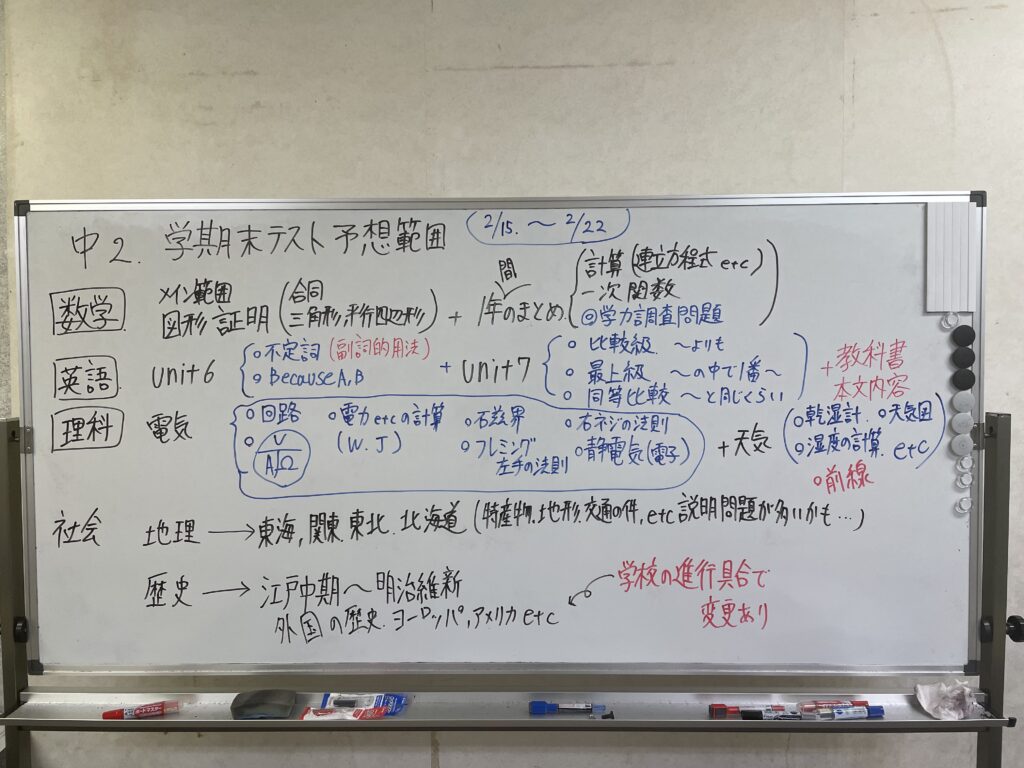 中2. 学期末テスト予想範囲 2/15.～2/22
数学 メイン範囲 図形証明 (合同 三角形,平行四辺形) + 1年間のまとめ. (計算(連立方程式etc) 一次関数 ◎学力調査問題)
英語 unit6 {○不定詞(副詞的用法) ○Because A, B + unit7 {○比較級. ～よりも ○最上級 ～の中で1番～ ○同等比較 ～と同じくらい} + 教科書本文内容
理科 電気 (○回路 ○V A Ω ○電力etcの計算 (W. J) ○磁界 ○フレミング左手の法則 ○右ネジの法則 ○静電気(電子)) + 天気 (○乾湿計. ○天気図 ○湿度の計算. etc) ○前線
社会 地理 → 東海,関東.東北.北海道 (特産物.地形.交通の件,etc 説明問題が多いかも…)
歴史 → 江戸中期～明治維新
外国の歴史.ヨーロッパ,アメリカetc
学校の進行具合で
変更あり